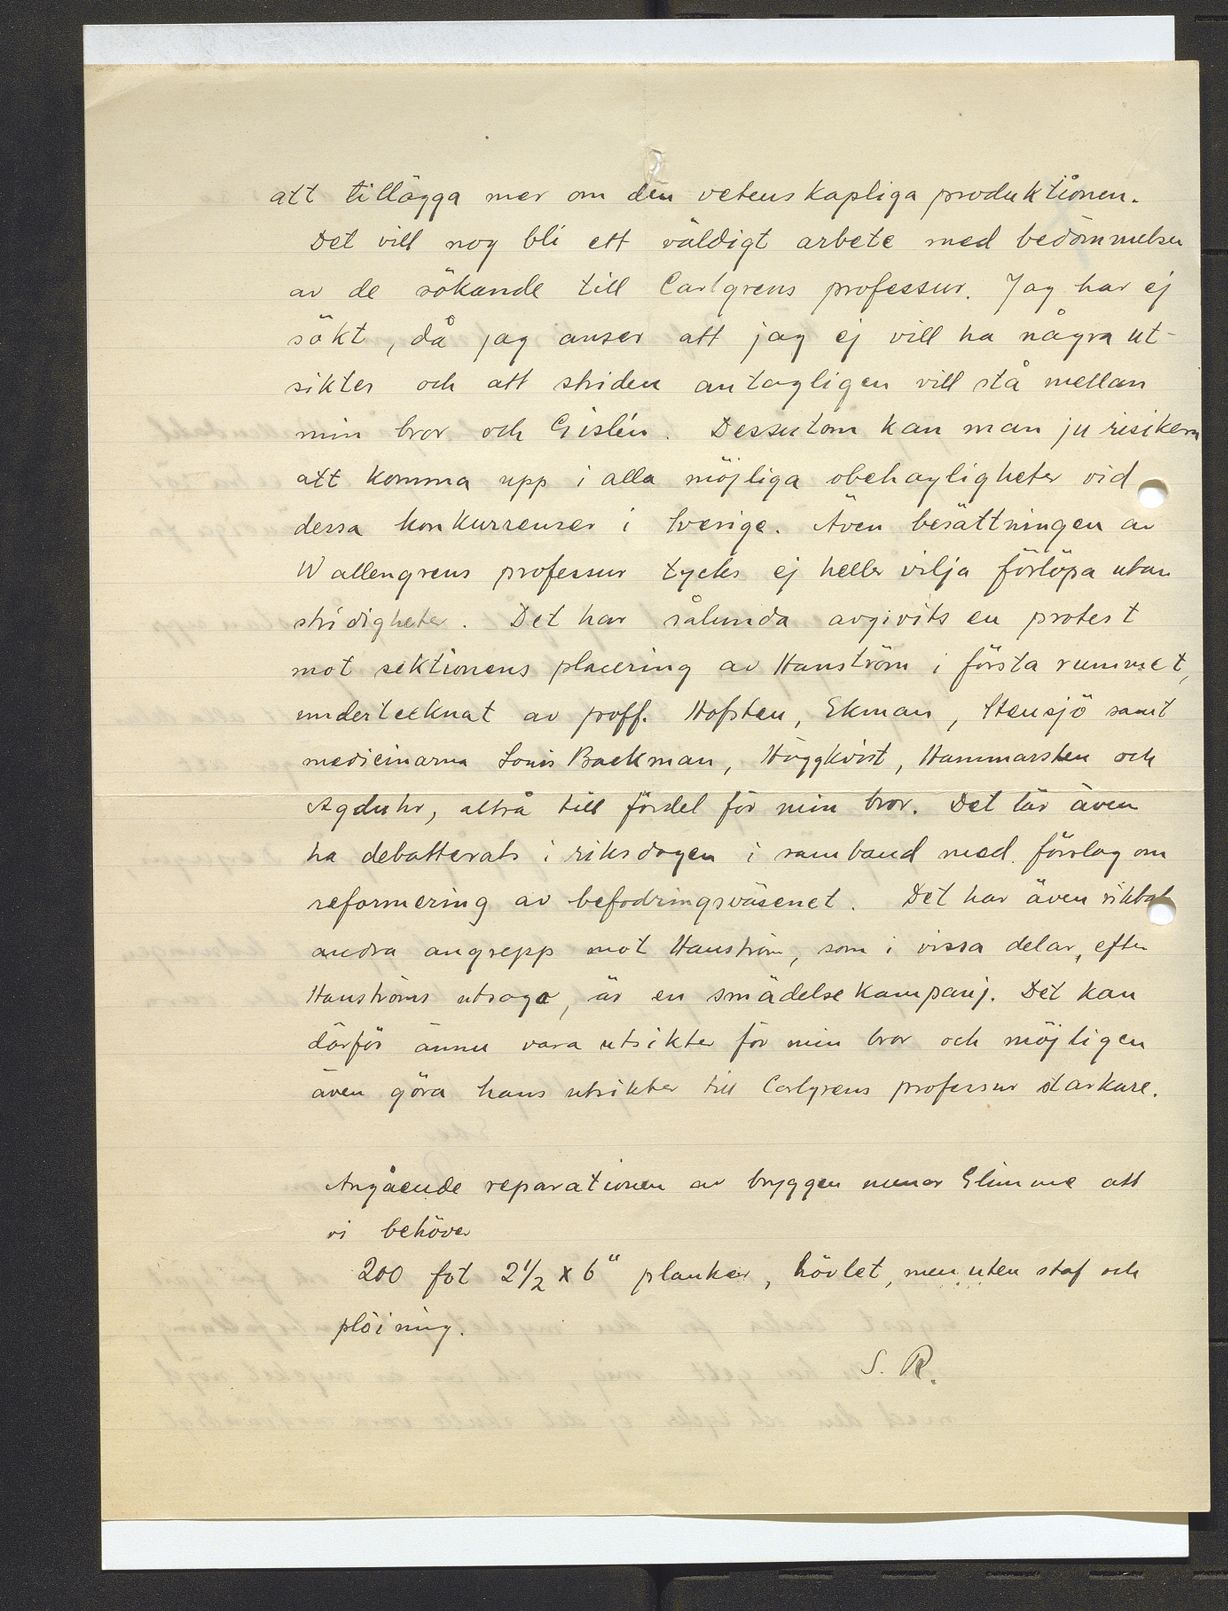 att tillägga mer om den vetenskapliga produktionen.
Det vill nog bli ett väldigt arbete med bedömmelsen
av de sökande till Carlgrens professur. Jag har ej
sökt, då jag anser att jag ej vill ha några ut-
sikter och att striden antagligen vill stå mellan
min bror och Gislén. Dessutom kan man ju riskera
att komma upp i alla möjliga obehagligheter vid
dessa konkurrenser i Sverige. Även besättningen av
Wallengrens professur tycks ej heller vilja förlöpa utan
stridigheter. Det har sålunda avgivits en protest
mot sektionens placering av Hanström i första rummet,
undertecknat av proff. Hofsten, Ekman, Stensjö samt
medicinarna Louis Backman, Häggkvist, Hammarsten och
Agduhr, altså till fördel för min bror. Det lär även
ha debatterats i riksdagen i samband med förslag om
reformering av befodringsväsenet. Det har även riktats
andra angrepp mot Hanström, som i vissa delar, efter
Hanströms utsago, är en smädelsekampanj. Det kan
därför ännu vara utsikter för min bror och möjligen
även göra hans utsikter till Carlgrens professur starkare.
Angående reparationen av bryggen menar Glimme att
vi behöver
200 fot 2 1/2 x 6" plankar, hövlet, men uten staf och
plöining.
S. R.